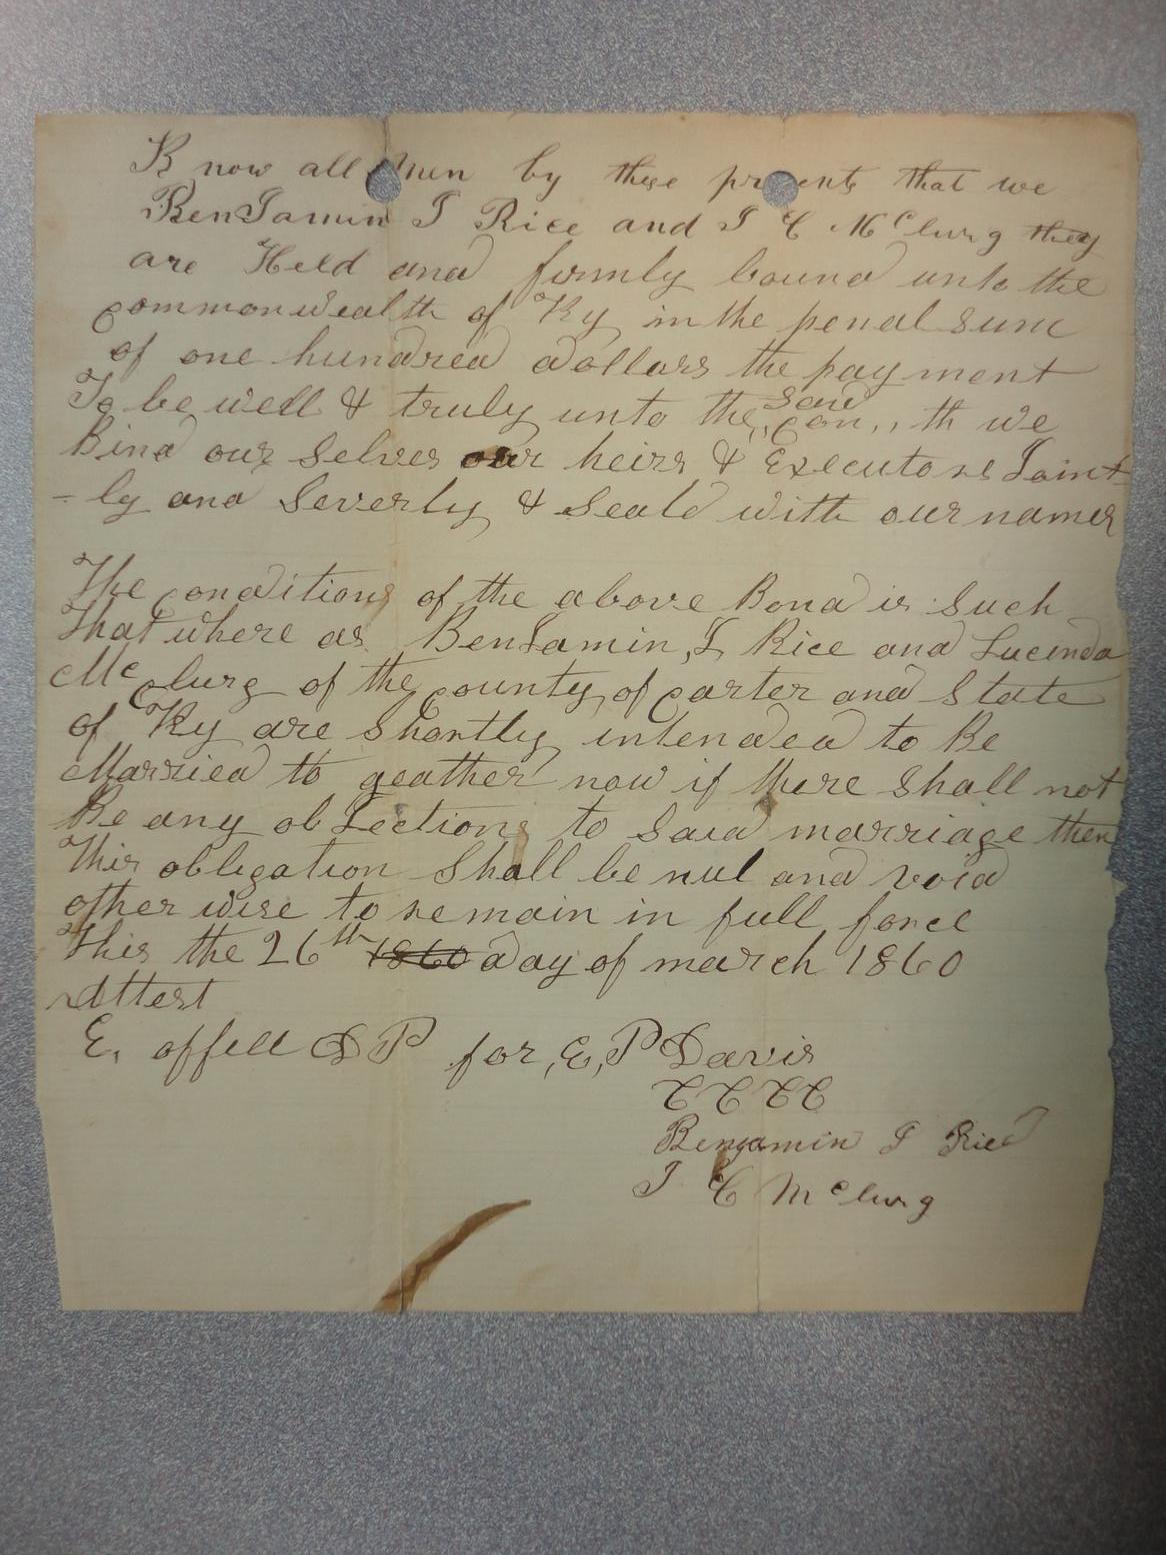 Know all men by these presents that we
BenJamin J Rice and J C McClurg they
are Held and firmly bound unto the
commonwealth of Ky in the penal sum
of one hundred dollars the payment
To be well & truly unto the said Con,, th we
Bind our selves our heirs & Executors Joint
- ly and Severly & Seald with our names
The conditions of the above Bond is Such
That where as BenJamin, J, Rice and Lucinda
McClurg of the county of carter and State
of Ky are shortly intended to Be
Married to geather now if there shall not
Be any obJections to Said marriage then
This obligation Shall be nul and void
other wise to remain in full force
This the 26th 1860 day of march 1860
Attest
E. offell D P for, E, P Davis
C C C C
Benjamin J Rice
J C McClurg